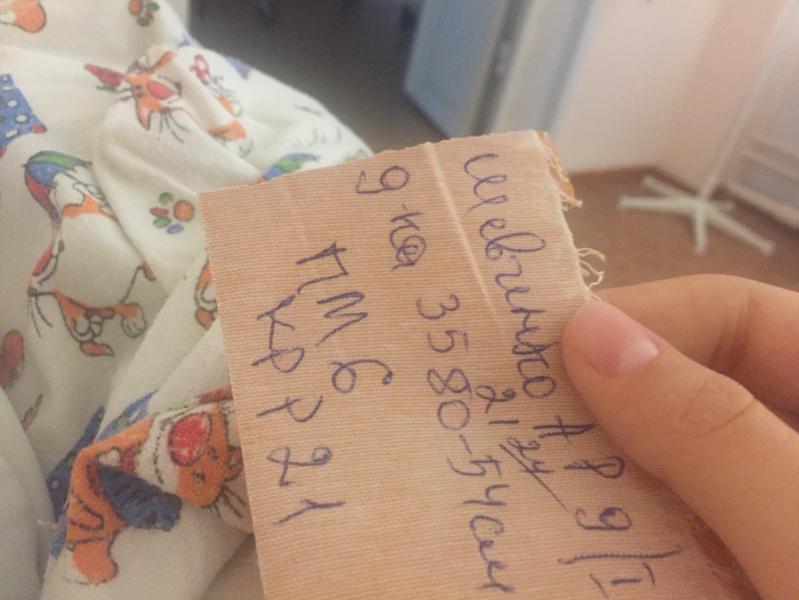 Шевченко А Р 9/I
21 24
д-ка 3580-54см
ПМ6
КРР21